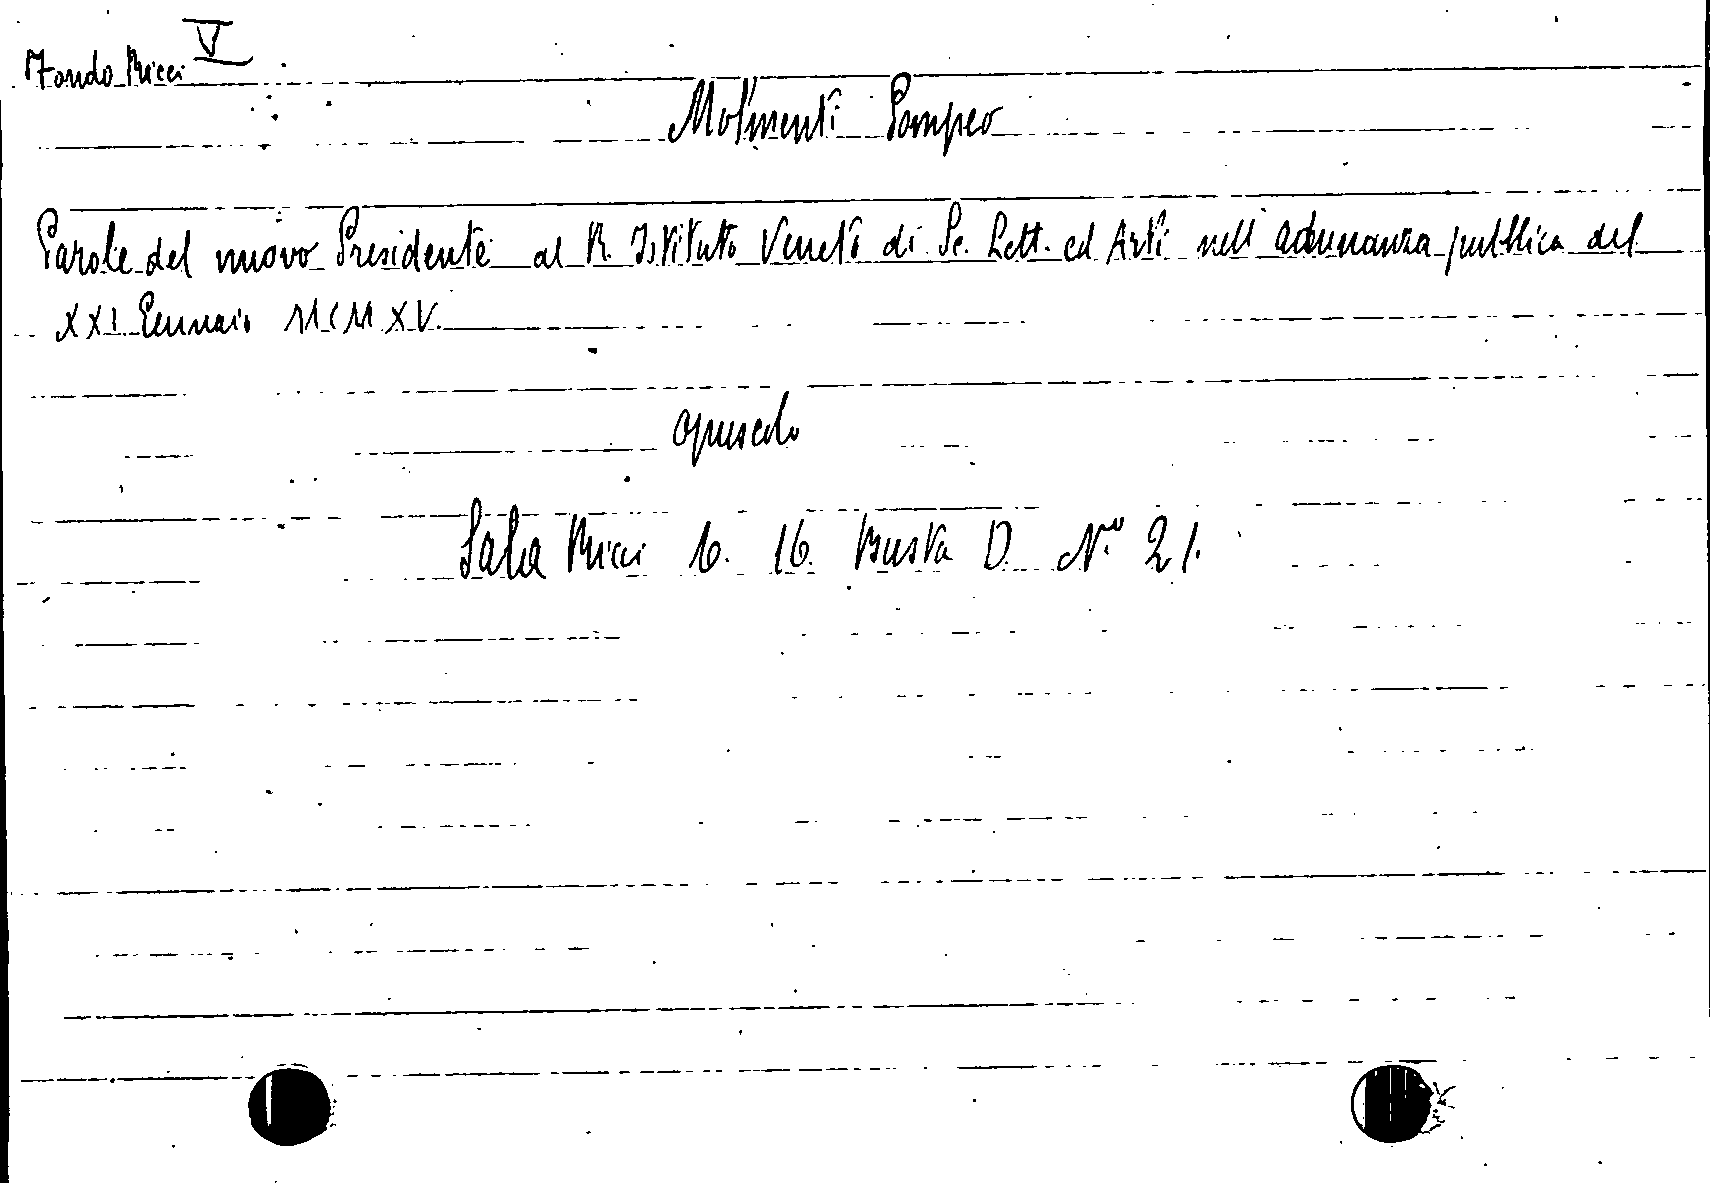 Fondo Ricci V
Molmenti Pompeo
Parole del nuovo Presidente al R. Istituto Veneto di Sc. Lett. ed Arti nell'adunanza pubblica del
XXI Gennaio MCMXV.
opuscolo
Sala Ricci 6. 16. Busta D. N.º 21.